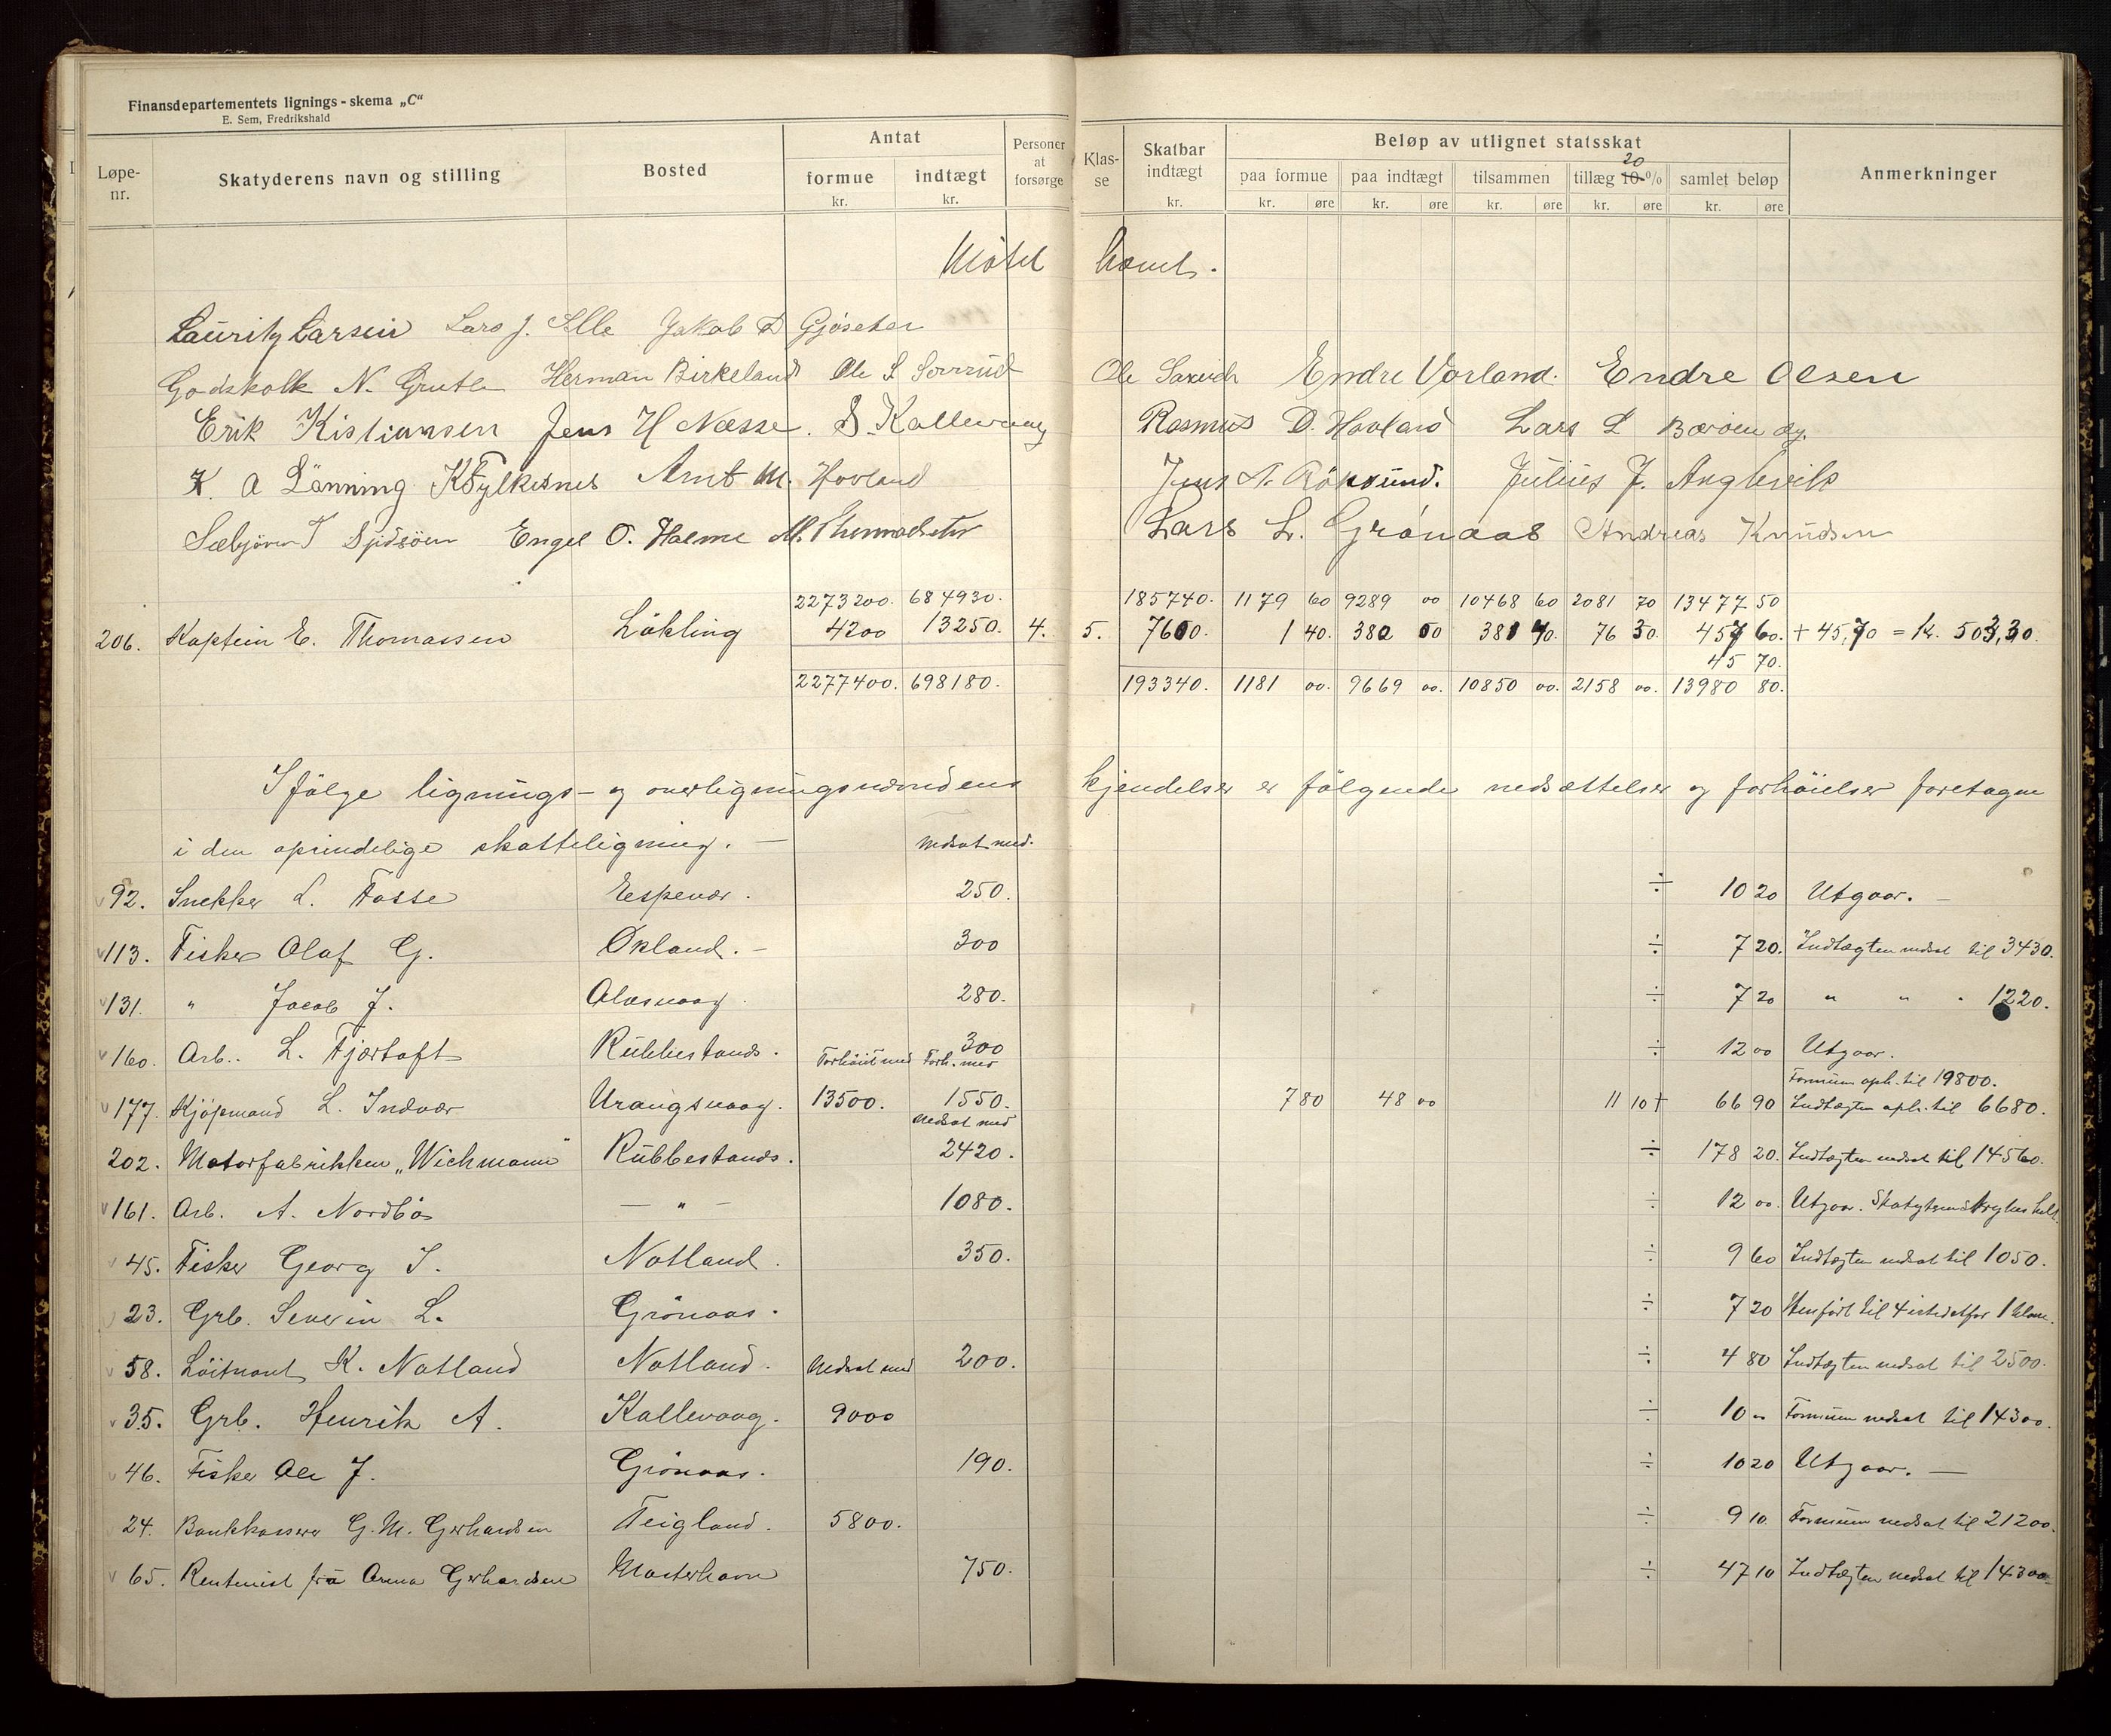 Finansdepartementets lignings-skema „C“
E. Sem, Fredrikshald
Løpe-nr. Skatyderens navn og stilling Bosted Antat formue kr. indtægt kr. Personer at forsørge Klas-se Skatbar indtægt kr. Beløp av utlignet statsskat paa formue kr. øre paa indtægt kr. øre tilsammen kr. øre tillæg 10 20 % kr. øre samlet beløp kr. øre Anmerkninger
Møtet hævet.
Lauritz Larsen Lars J. Jakob D Gjøseter
Godskalk N. Grutle Herman Birkeland Ole S Ole Endre Vorland. Endre Olsen
Erik Kistiansen Jens H Næsse. S. Kallevaag Rasmus D. Hovland Lars L Bærøen
K. A Lönning K Fylkesnes Arnt M. Hovland Jens N. Röksund. Julius J. Anglevik
Sæbjörn T Engel O. Holme M. Lars L. Grönaas Andreas Knudsen
2273200. 684930. 185740. 1179 60 9289 00 10468 60 2081 70 13477 50
206. Kaptein E. Thomassen Lökling 4200 13250. 4. 5. 7600. 1 40. 380 00 381 40. 76 30. 457 60. + 45,70 = Kr. 503,30.
45 70.
2277400. 698180. 193340. 1181 00. 9669 00. 10850 00. 2158 00. 13980 80.
Ifölge lignings- og overligningsnemndens kjendelser er fölgende nedsættelser og forhöielser foretagne
i den oprindelige skatteligning. — Nedsat med.
92. Snekker L. Fosse Espevær. 250. ÷ 10 20 Utgaar. —
113. Fisker Olaf G. Økland. — 300 ÷ 7 20. Indtægten nedsat til 3430.
131. " Jacob J. Alvsvaag. 280. ÷ 7 20 " " " 1220.
160. Arb. L. Fjærtoft Rubbestands. 300 ÷ 12 00 Utgaar.
Forhöiet med Forh. med Formuen oph. til 19800.
177. Kjöpmand L. Indvær Urangsvaag. 13500. 1550. 7 80 48 00 11 10 + 66 90 Indtægten oph. til 6680.
Nedsat med
202. Motorfabrikken „Wichmann" Rubbestands. 2420. ÷ 178 20. Indtægten nedsat til 14560.
161. Arb. A. Nordbö — " — 1080. ÷ 12 00. Utgaar. Skatyteren strykes helt.
45. Fisker Georg J. Notland. 350. ÷ 9 60 Indtægten nedsat til 1050.
23. Grb. Severin L. Grönaas. ÷ 7 20 Henfört til 4 istedetfor 1 klasse.
58. Löitnant K. Notland Notland. 200. ÷ 4 80 Indtægten nedsat til 2500.
Nedsat med
35. Grb. Henrik A. Kallevaag. 9000 ÷ 10 00 Formuen nedsat til 14300.
46. Fisker Ole J. Grönaas. 190. ÷ 10 20 Utgaar. —
24. Bankkasserer G. M. Gerhardsen Teigland. 5800. ÷ 9 10. Formuen nedsat til 21200.
65. Rentenist fru Anna Gerhardsen Mosterhavn 750. ÷ 47 10 Indtægten nedsat til 14300.